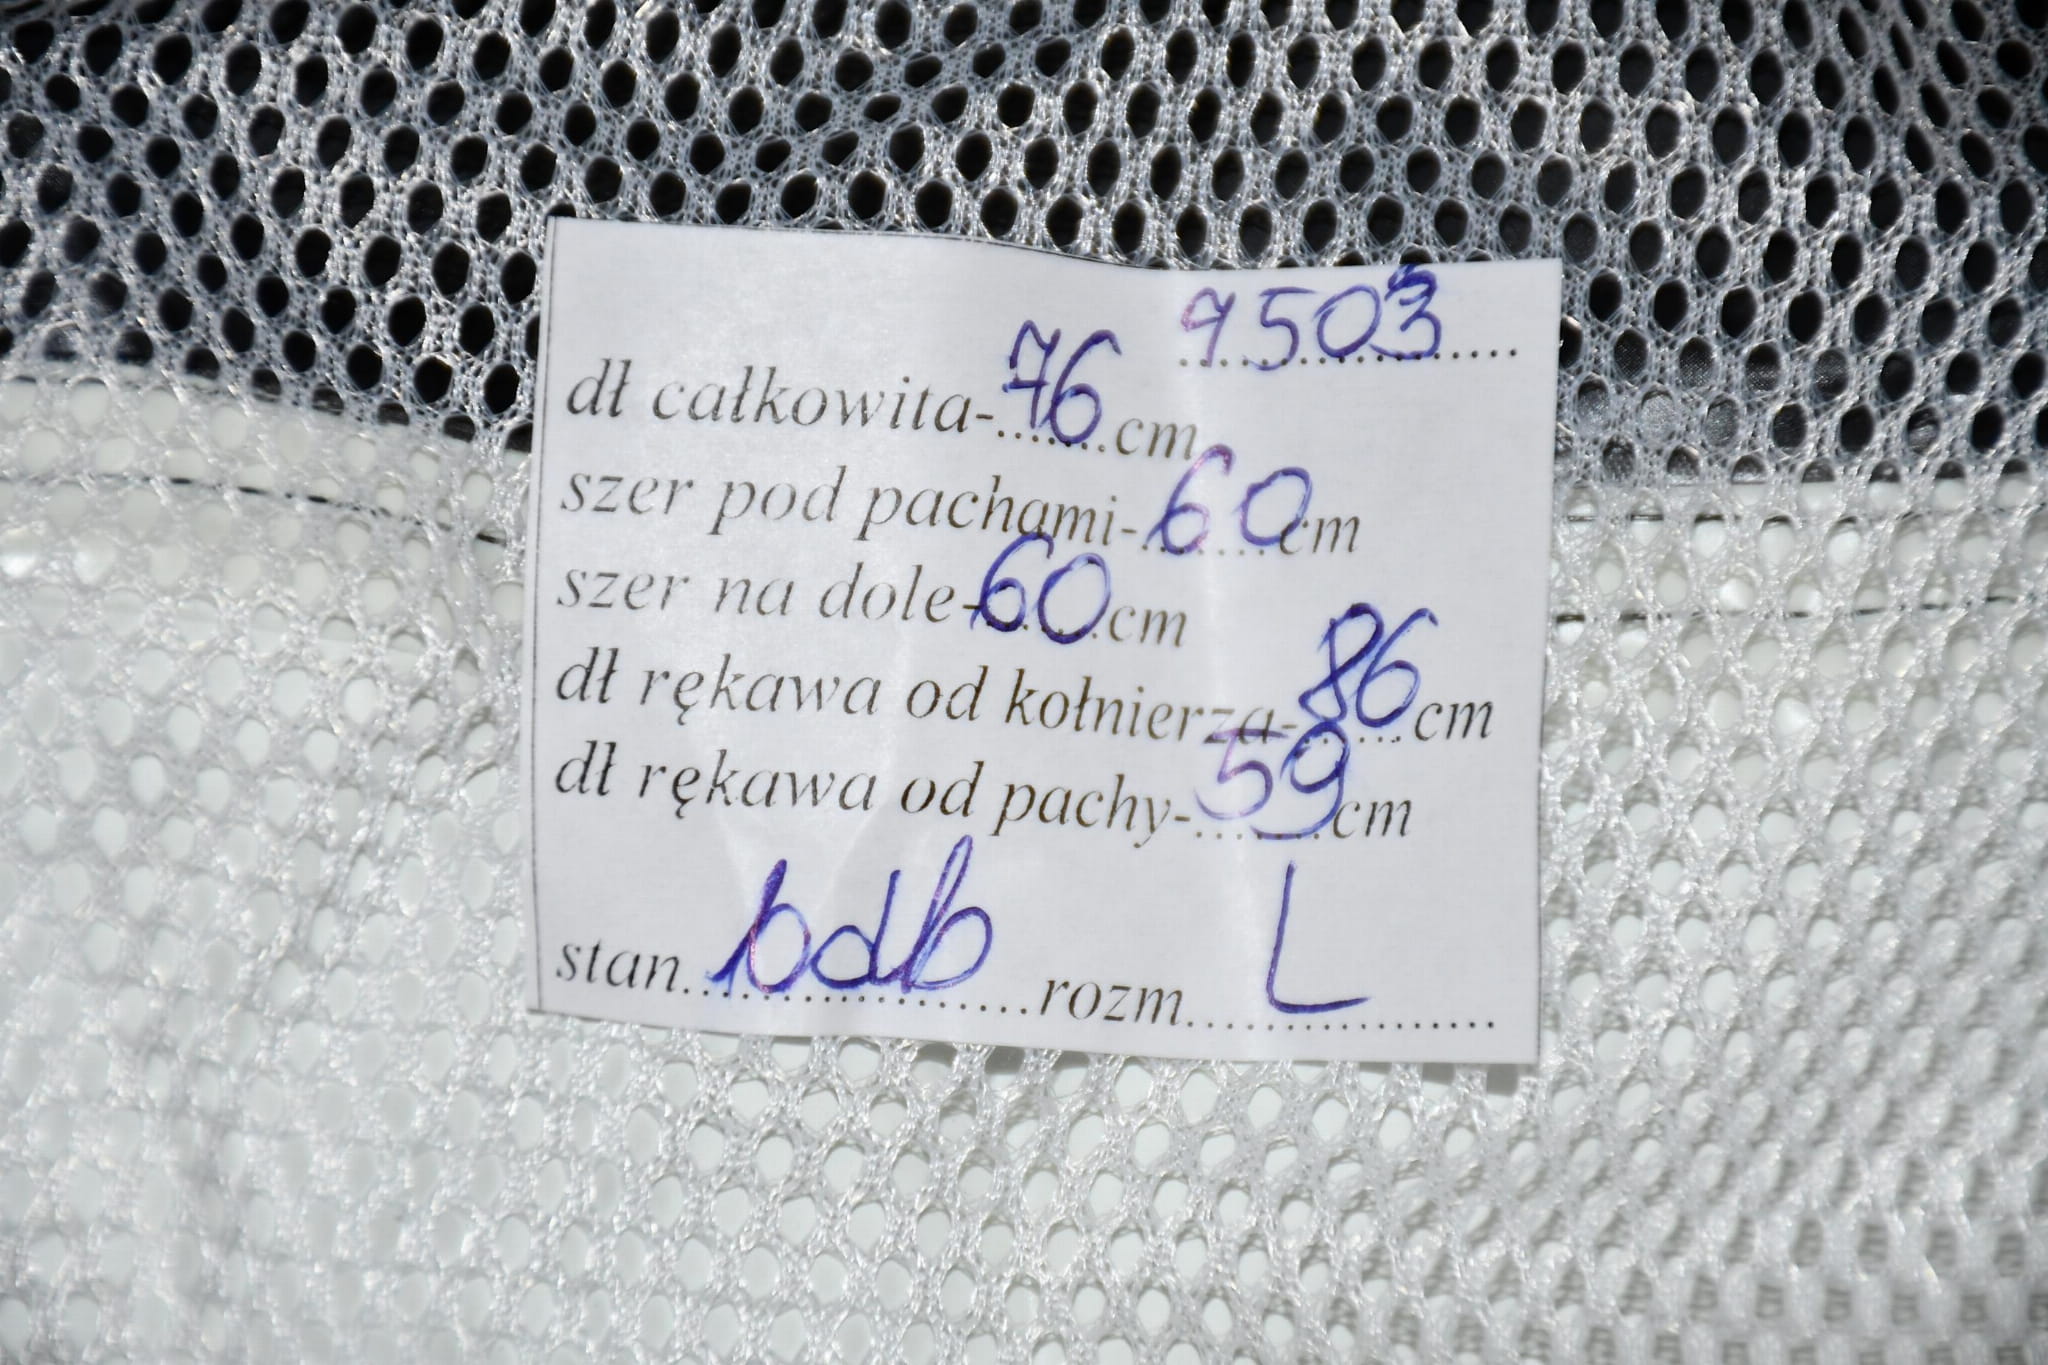 9503
dł całkowita-76cm
szer pod pachami-60cm
szer na dole-60cm
dł rękawa od kołnierza-86cm
dł rękawa od pachy-59cm
stan bdb rozm L